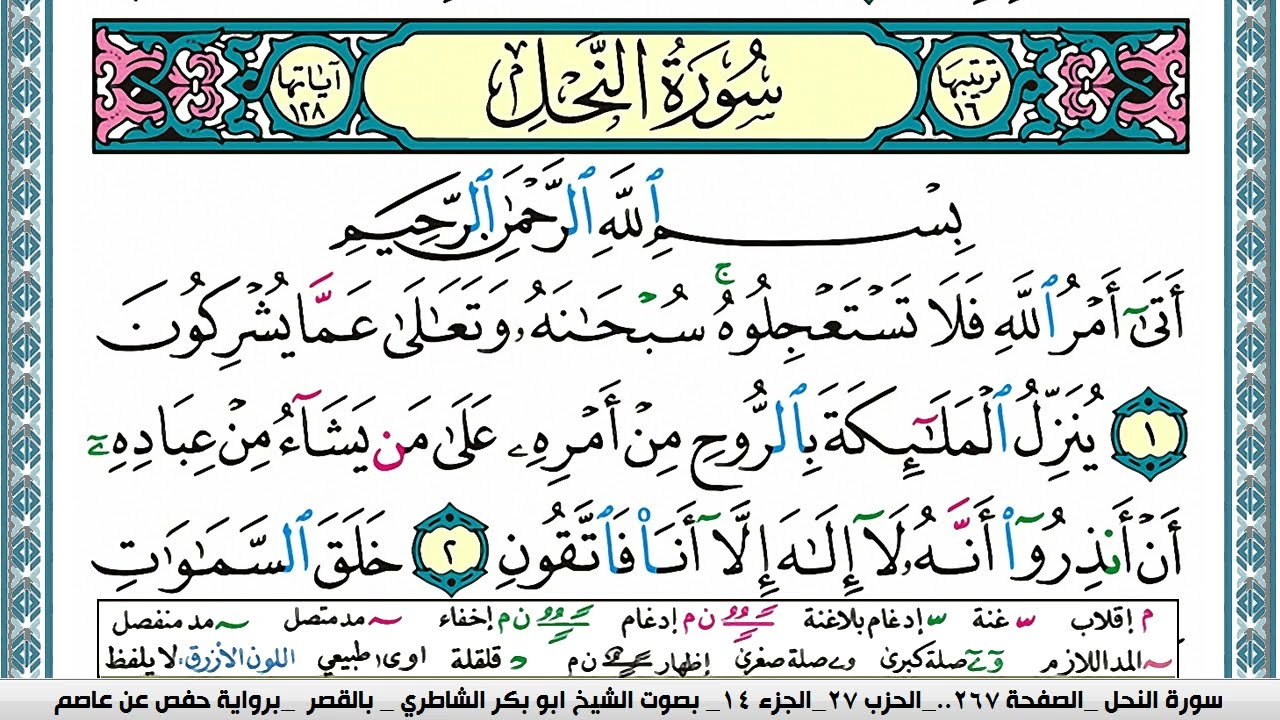 ترتيبها ١٦ سُورَةُ النَّحْلِ آياتها ١٢٨
بِسْمِ ٱللَّهِ ٱلرَّحْمَٰنِ ٱلرَّحِيمِ
أَتَىٰٓ أَمْرُ ٱللَّهِ فَلَا تَسْتَعْجِلُوهُ ۚ سُبْحَٰنَهُۥ وَتَعَٰلَىٰ عَمَّا يُشْرِكُونَ
١ يُنَزِّلُ ٱلْمَلَٰٓئِكَةَ بِٱلرُّوحِ مِنْ أَمْرِهِۦ عَلَىٰ مَن يَشَآءُ مِنْ عِبَادِهِۦٓ
أَنْ أَنذِرُوٓا۟ أَنَّهُۥ لَآ إِلَٰهَ إِلَّآ أَنَا۠ فَٱتَّقُونِ ٢ خَلَقَ ٱلسَّمَٰوَٰتِ
م إقلاب ~ غنة ~ إدغام بلاغنة ن م إدغام ن م إخفاء ~ مد متصل ~ مد منفصل
~ المد اللازم صلة كبرى و ے صلة صغرى إظهار ن م قلقلة اوى طبيعي اللون الأزرق: لا يلفظ
سورة النحل _الصفحة ٢٦٧.._الحزب ٢٧_الجزء ١٤_ بصوت الشيخ ابو بكر الشاطري _ بالقصر _برواية حفص عن عاصم